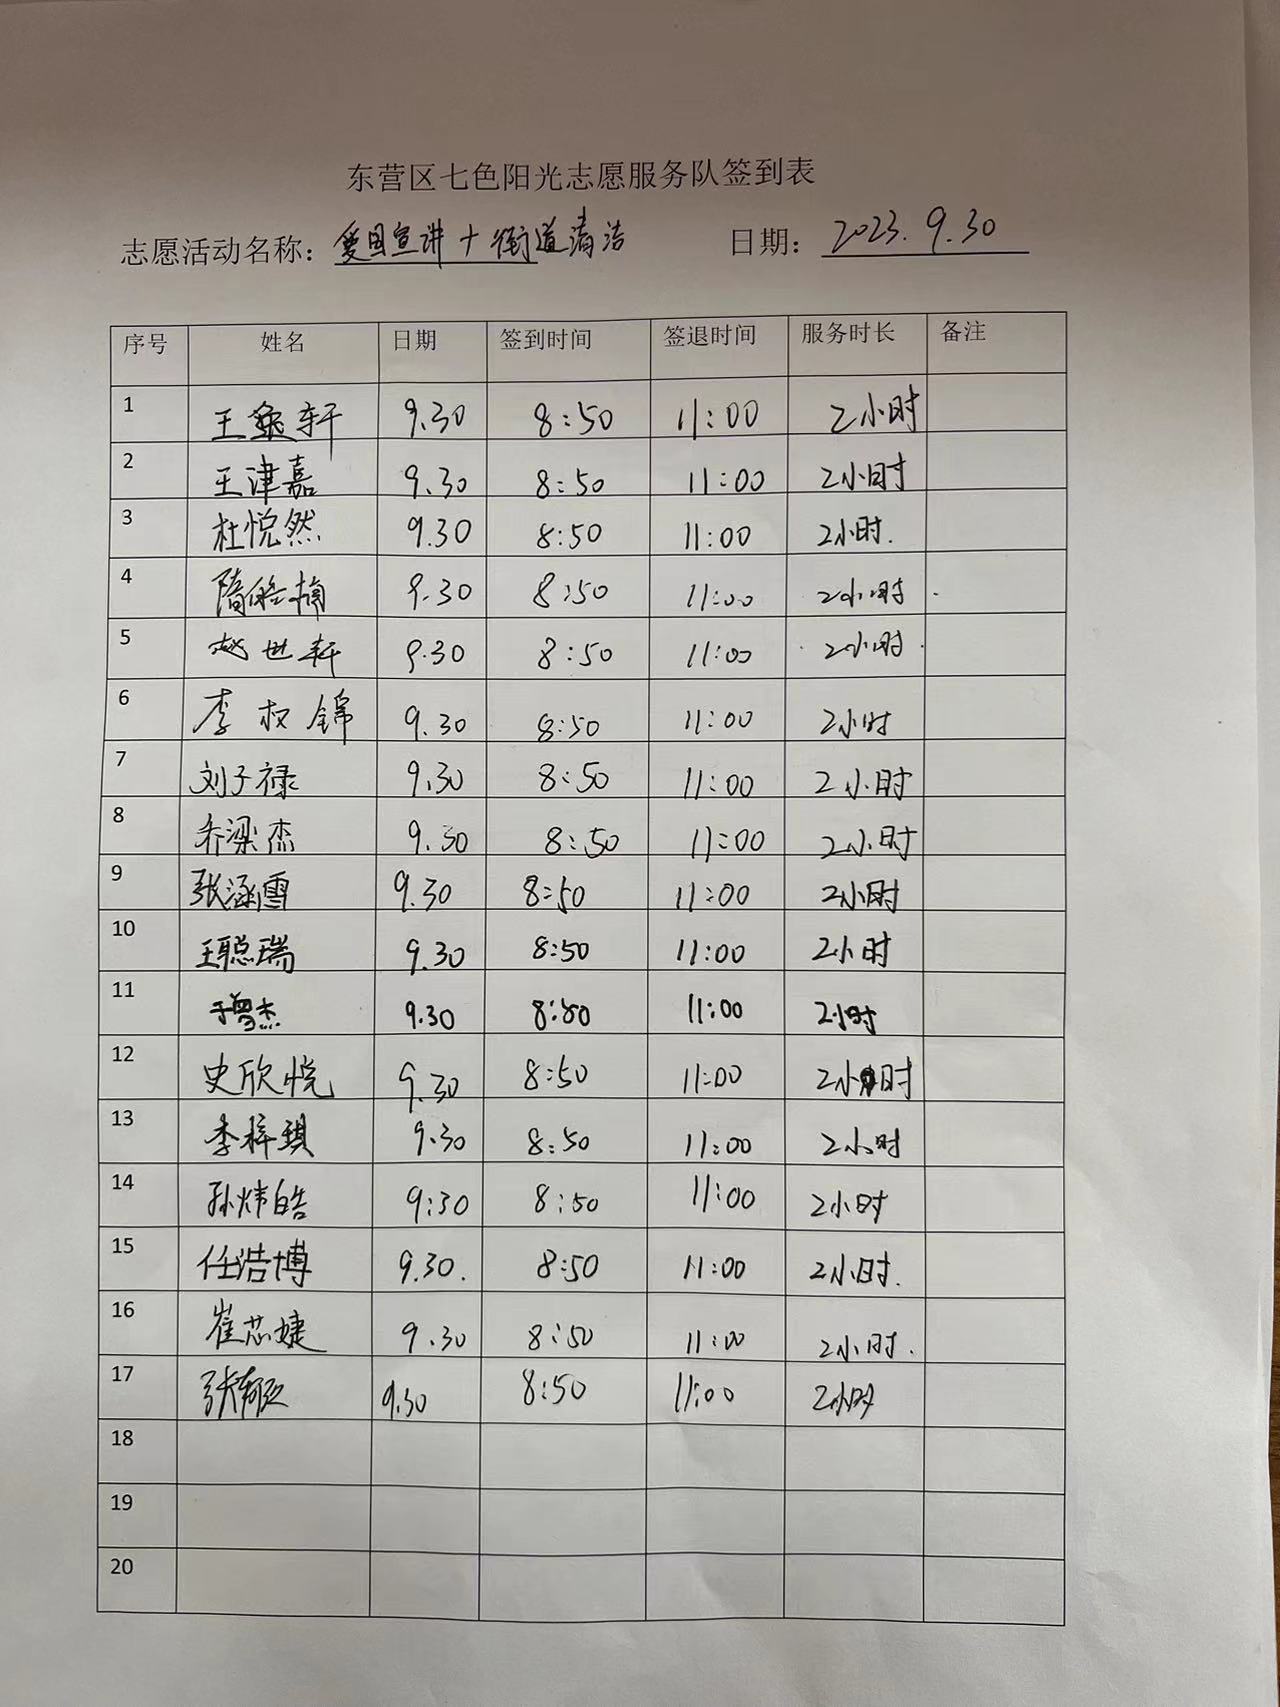 东营区七色阳光志愿服务队签到表
志愿活动名称：爱国宣讲+街道清洁 日期：2023.9.30
序号 姓名 日期 签到时间 签退时间 服务时长 备注
1 王 轩 9.30 8:50 11:00 2小时
2 王津嘉 9.30 8:50 11:00 2小时
3 杜悦然 9.30 8:50 11:00 2小时.
4 隋 楠 9.30 8:50 11:00 2小时.
5 赵世轩 9.30 8:50 11:00 2小时.
6 李权锦 9.30 8:50 11:00 2小时
7 刘子禄 9.30 8:50 11:00 2小时
8 乔梁杰 9.30 8:50 11:00 2小时
9 张涵雪 9.30 8:50 11:00 2小时
10 王聪瑞 9.30 8:50 11:00 2小时
11 于 杰 9.30 8:50 11:00 2小时
12 史欣悦 9.30 8:50 11:00 2小时
13 李梓琪 9.30 8:50 11:00 2小时
14 孙炜皓 9:30 8:50 11:00 2小时
15 任浩博 9.30. 8:50 11:00 2小时.
16 崔芯婕 9.30 8:50 11:00 2小时.
17 张 9.30 8:50 11:00 2小时
18
19
20